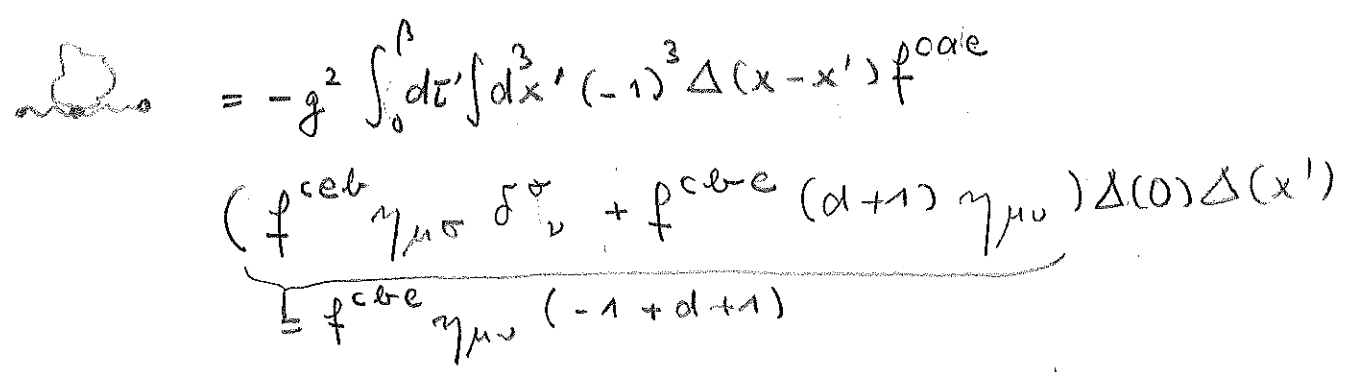 = -g² ∫₀^β dτ' ∫ d³x' (-1)³ Δ(x-x') f^{cae}
(f^{ceb} η_{μσ} δ^σ_ν + f^{cbe} (d+1) η_{μν}) Δ(0) Δ(x')
= f^{cbe} η_{μν} (-1+d+1)